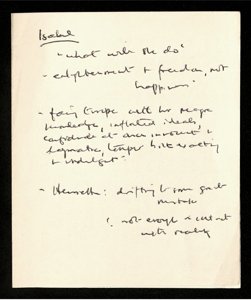 Isabel
"what will she do"
- enlightenment & freedom, not
happiness
- facing Europe with her meagre
knowledge, inflated ideals,
confidence at once innocent &
dogmatic, temper
& indulgent"
- Henrietta: drifting to some great
mistake
: not enough contact
with reality